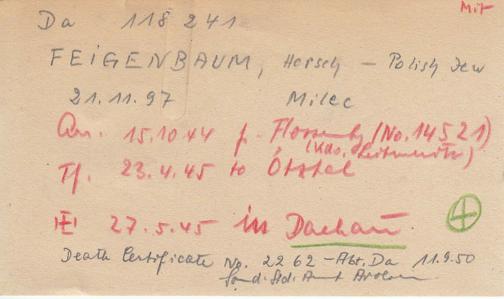 Mit
Da 118 241
FEIGENBAUM, Hersch – Polish Jew
21.11.97 Milec
An. 15.10.44 f. Flossenbg (No. 14521)
(Kdo. Leitmeritz)
Tf. 23.4.45 to Ötztal
27.5.45 in Dachau
Death Certificate No. 2262 – Abt. Da 11.9.50
Sond. St. Amt Arolsen